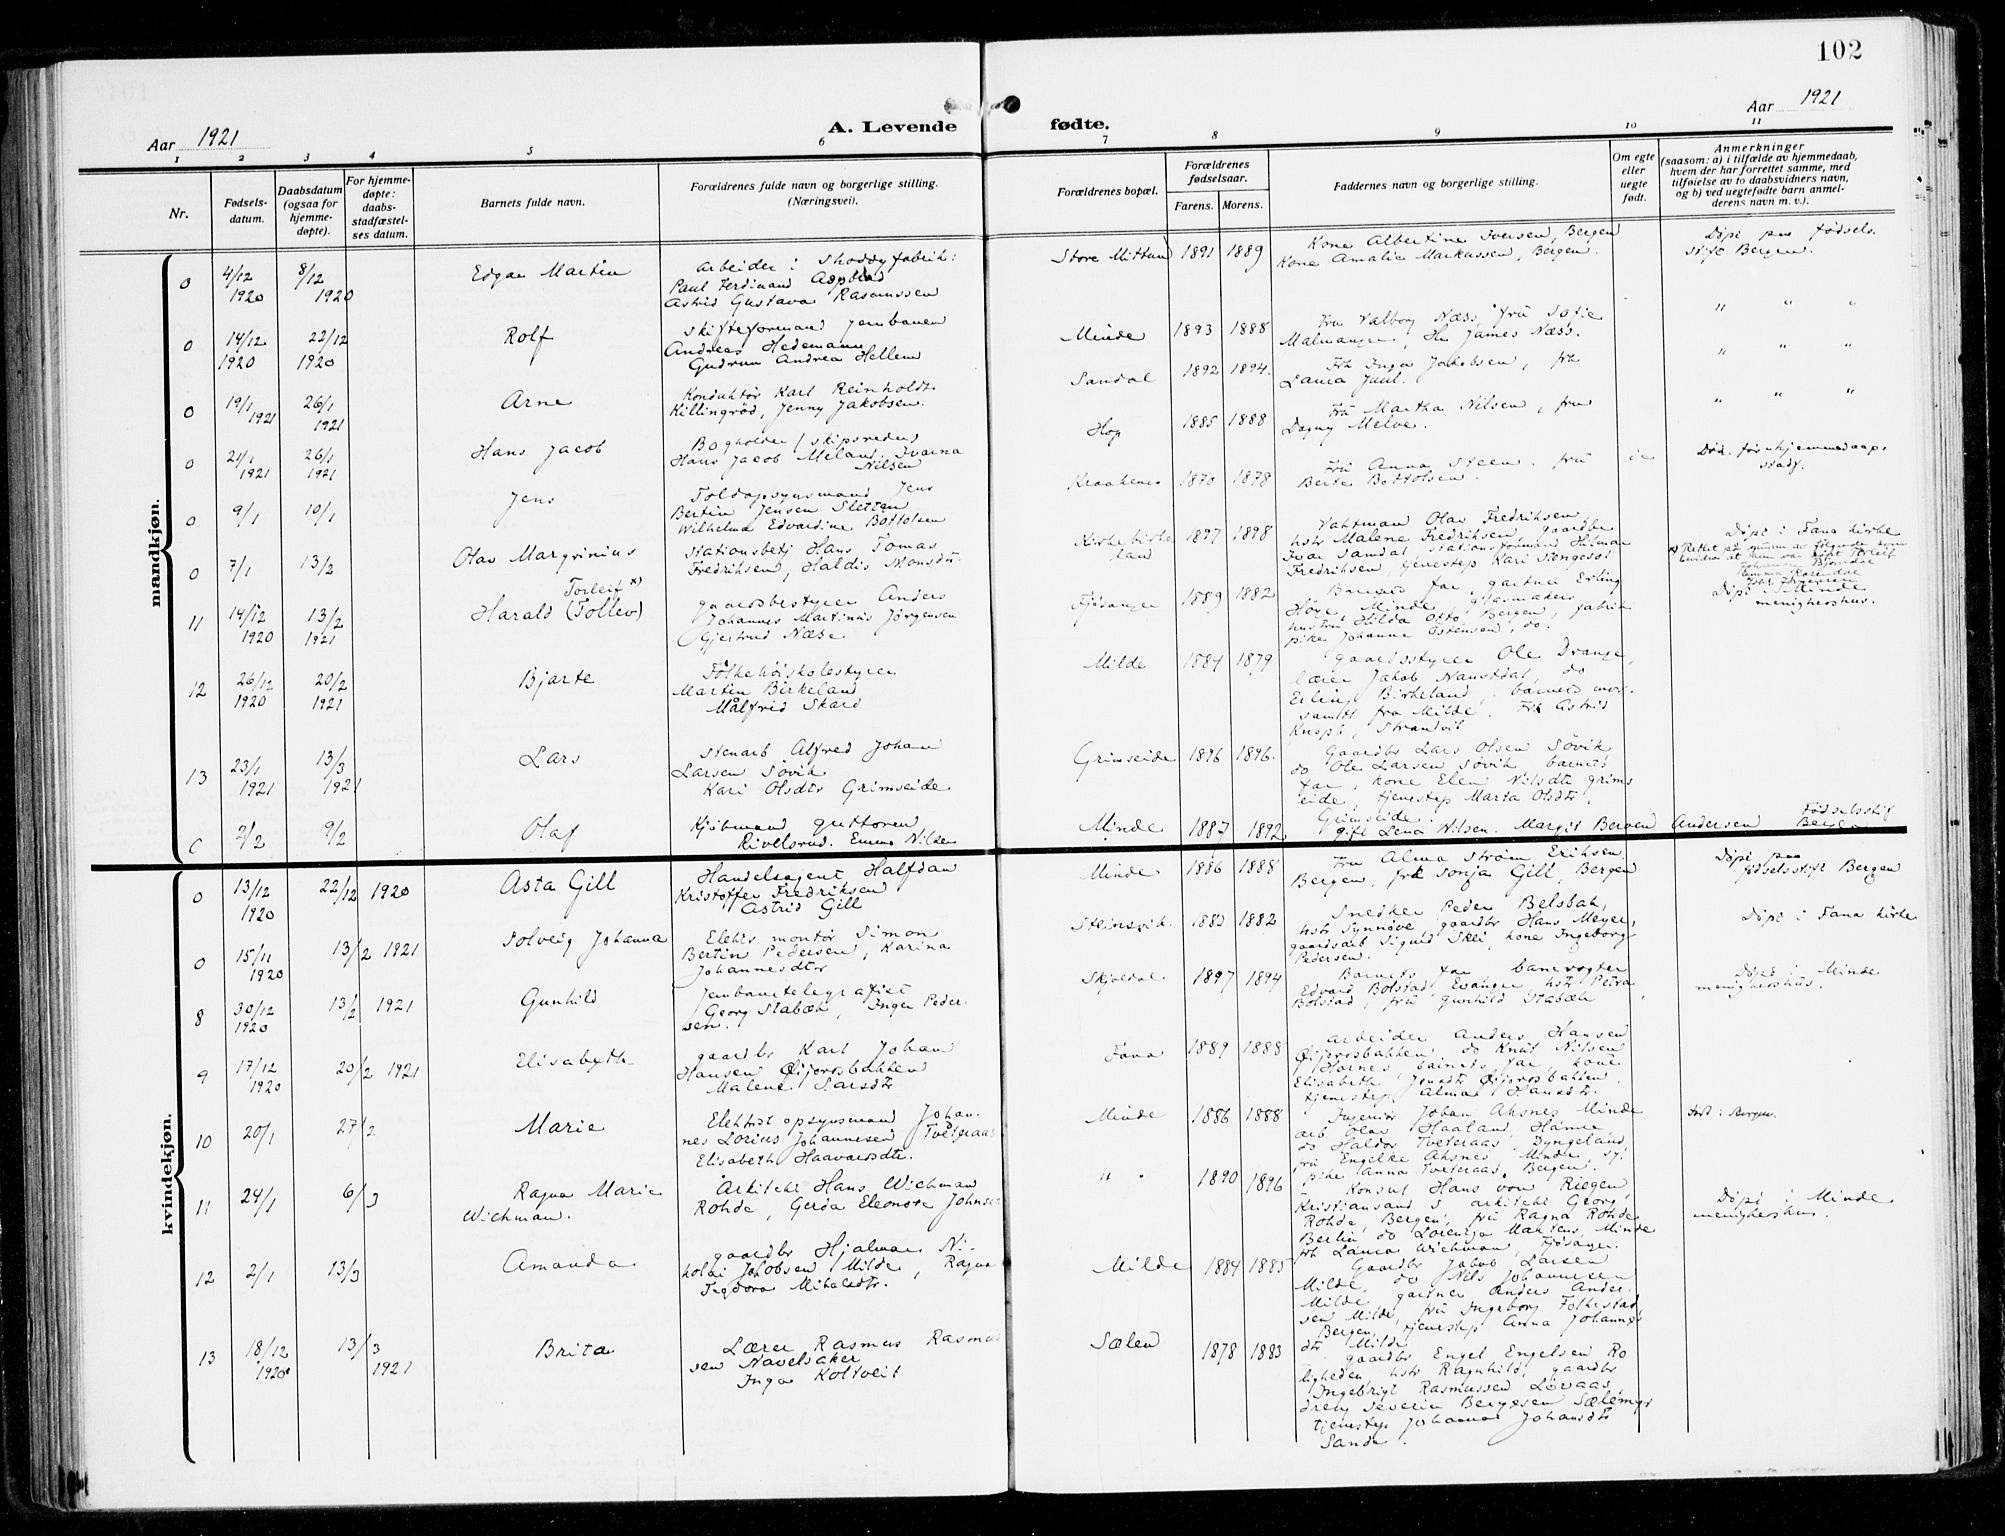 102
Aar 1921
A. Levende fødte.
Aar 1921
1 2 3 4 5 6 7 8 9 10 11
Nr.
Fødsels-
datum.
Daabsdatum
(ogsaa for
hjemme-
døpte).
For hjemme-
døpte:
daabs-
stadfæstel-
ses datum.
Barnets fulde navn.
Forældrenes fulde navn og borgerlige stilling.
(Næringsvei).
Forældrenes bopæl.
Forældrenes
fødselsaar.
Farens. Morens.
Faddernes navn og borgerlige stilling.
Om egte
eller
uegte
født.
Anmerkninger
(saasom: a) i tilfælde av hjemmedaab,
hvem der har forrettet samme, med
tilføielse av to daabsvidners navn,
og b) ved uegtefødte barn anmel-
derens navn m. v.).
mandkjøn.
0 4/12 1920 8/12 1920 Edgar Martin
Arbeider i Shoddyfabrik:
Paul Ferdinand
Astrid Gustava Rasmussen
Store Mittun 1891 1889
Kone Albertine Iversen, Bergen
Kone Amalie Markussen, Bergen.
Døpt paa fødsels.
stift Bergen.
0 14/12 1920 22/12 1920 Rolf
Skifteformand Jernbanen
Andreas Hedemann
Gudrun Andrea Hellem
Minde 1893 1888
Fru Valborg Næss, frü Sofie
Malmanger, Hr James Næss.
" " "
0 19/1 1921 26/1 1921 Arne
Konduktør Karl Reinholdt
Killingrød, Jenny Jakobsen.
Sandal 1892 1894.
Frk Inga Jakobsen, frk
Laura Juul.
" " "
0 21/1 1921 26/1 1921 Hans Jacob
Bogholder (skipsreder)
Hans Jacob Meland. Ivarna
Nilsen
Hop 1885 1888
Frü Martha Nilsen, fru
Dagny Melve.
" " "
0 9/1 10/1 Jens
Toldopsynsmand Jens
Bertin Jensen Sletten
Wilhelma Edvardine Bottolsen
Kraakenes 1870 1878
Frü Anna Steen. frü
Berta Bottolsen.
Død før hjemmedaaps.
stadf.
0 7/1 13/2 Olav Margrinius
Stationsbetj Hans Tomas
Fredriksen, Haldis Monsdtr.
Kirkebirke
land
1897 1898
Vahtman Olav Fredriksen,
hstr Malene Fredriksen, gaardbr
Ivar Samdal, stationsformand Hilmar
Fredriksen, tjenestep Kari Stengesøt
Døpt i Fana kirke
11 14/12 1920 13/2 1921 Harald (Tollev) Torleif x)
gaardbestyrer Anders
Johannes Martinus Jørgensen
Gjertrud Næse
Fjøsanger 1889 1882
Barnets far, gartner Erling
Høye, Minde, glasmakers
hustru Hilda Otto, Bergen, fabrik
pike Johanne Østensen, do.
Døpt i Minde
menighetshus.
12 26/12 1920 20/2 1921 Bjarte
Folkehøiskolestyrer
Martin Birkeland
Målfrid Skard
Milde 1884 1879
Gaardsstyrer Ole Drange,
lærer Jakob Naustdal, do
Erling Birkeland, barnets mor.
samtl fra Milde. Frk Astrid
Knoph, Strandvik
13 23/1 1921 13/3 1921 Lars
Stenarb Alfred Johan
Larsen Søvik
Kari Olsdtr Grimseide
Grimseide 1896 1896.
Gaardbr Lars Olsen Søvik
do Ole Larsen Søvik barnets
far, kone Elen Nilsdtr Grims
eide, tjenestep Marta Olsdtr,
Grimseide.
0 2/2 9/2 Olaf
Kjøbmand Guttoren
Rivelsrud. Emma Nilsen
Minde 1887 1892
gift Lena Nilsen. Margit Berven Andersen
Fødselsstif
Bergen
kvindekjøn.
0 13/12 1920 22/12 1920 Asta Gill
Handelsagent Halfdan
Kristoffer Fredriksen
Astrid Gill
Minde 1886 1888
Fru Alma Strøm Eriksen
Bergen, frk Sonja Gill, Bergen
Døpt paa
fødselsstift Bergen
0 15/11 1920 13/2 1921 Solveig Johanna
Elektr montør Simon
Bertin Pedersen, Karina
Johannesdtr
Steinsvik. 1883 1882
Snedker Peder Belsbak,
hstr Synnøve, gaardbr Hans Meyer,
gaardsarb Sigurd Skei, kone Ingeborg
Pedersen.
Døpt i Fana kirke
8 30/12 1920 13/2 1921 Gunhild
Jernbanetelegrafist
Georg Stabæk, Inga Peder
sen.
Skjoldal 1897 1894
Barnets far, banevogter
Edvard Bolstad, Evanger, hstr Petra
Bolstad, frü Gunhild Stabæk
Døpt i Minde
menighetshus.
9 17/12 1920 20/2 1921 Elisabeth
gaardbr Karl Johan
Hansen Øijordsbakken
Malene Larsdtr
Fana 1889 1888
Arbeider Anders Hansen
Øijordsbakken, do Knut Nilsen
Hornes, barnets far, kone
Elisabeth Jonsdtr Øijordsbakken,
tjenestep. Alma Hansdtr.
10 20/1 27/2 Marie
Elektrist opsynsmand Johan.
nes Lorius Johannesen Tveteraas
Elisabeth Haavardsdtr.
Minde 1886 1888
Ingeniør Johan Aksnes Minde
arb Olav Haaland, Hamre
do Haldor Tveteraas, Dyngeland,
frü Engelke Aksnes, Minde, sy.
pike Anna Tveteraas, Bergen.
født i Bergen.
11 24/1 6/3 Ragna Marie
Wichman.
Arkitekt Hans Wichman
Rohde, Gerda Eleonore Johnsen
" " 1890 1896
Konsul Hans von Riegen,
Kristiansand S, arkitekt Georg
Rohde, Bergen, frü Ragna Rohde,
Berlin, do Lorentza Martens Minde
frk Laura Wichman, Fjøsanger.
Døpt i Minde
menighetshus.
12 2/1 13/3 Amanda
gaardbr Hjalmar Ni-
kolai Jakobsen Milde, Ragna
Teodora Mikalsdtr.
Milde 1884 1885
Gaardbr Jakob Larsen
Milde, do Nils Johannesen
Milde, gartner Anders Ander.
sen Milde, frü Ingeborg Folkestad,
Bergen, tjenestep Anna Johannes
dtr Milde
13 18/12 1920 13/3 1921 Brita
Lærer Rasmus Rasmus
sen Navelsaker
Inga Koltveit
Sælen 1878 1883
gaardbr Engel Engelsen Ro
ligheden, hstr Ragnhild, gaardbr
Ingebrigt Rasmussen Løvaas,
dreng Severin Bergesen Sælemyr
tjenestep Johanna Johansdtr
Sande.